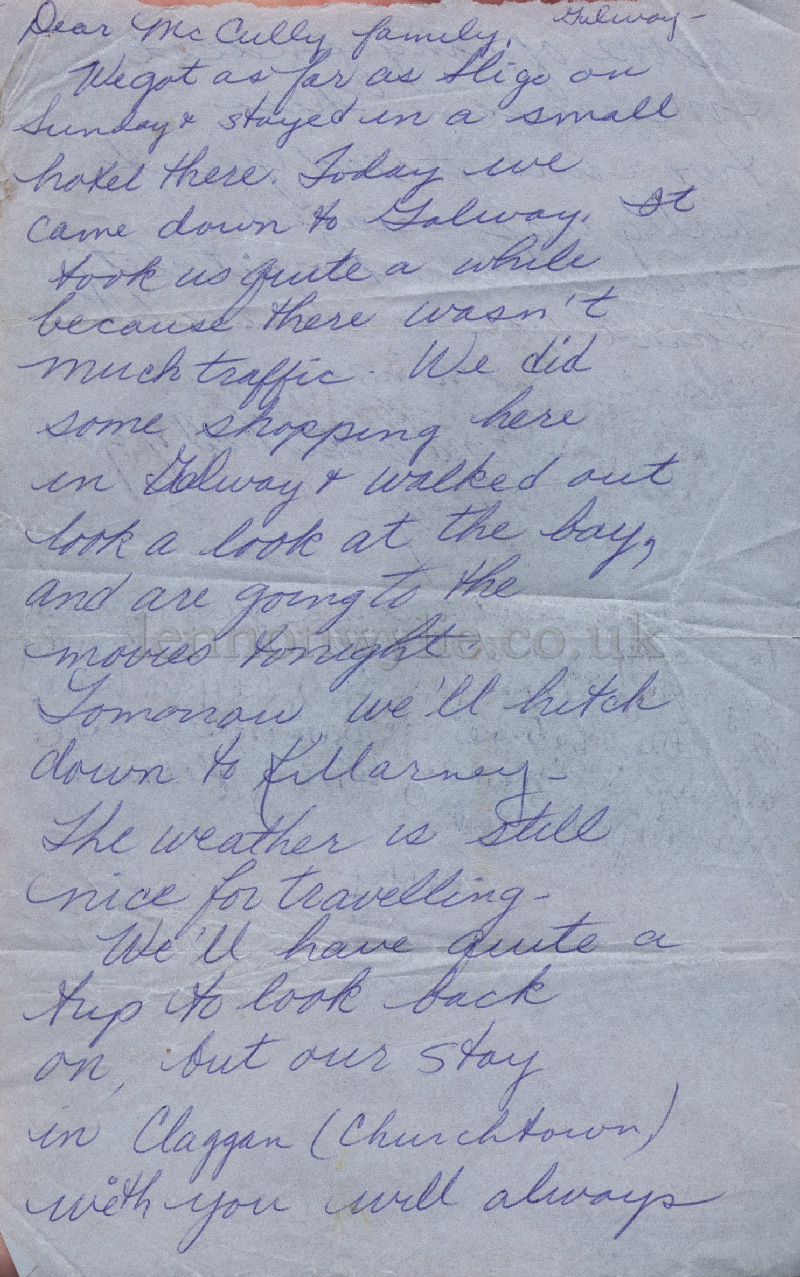 Galway-
Dear McCully family,
We got as far as Sligo on
Sunday & stayed in a small
hotel there. Today we
came down to Galway. It
took us quite a while
because there wasn't
much traffic. We did
some shopping here
in Galway & walked out
look a look at the bay,
and are going to the
movies tonight.
lennonwylie.co.uk
Tomorrow we'll hitch
down to Killarney-
The weather is still
nice for travelling-
We'll have quite a
trip to look back
on, but our stay
in Claggan (Churchtown)
with you will always